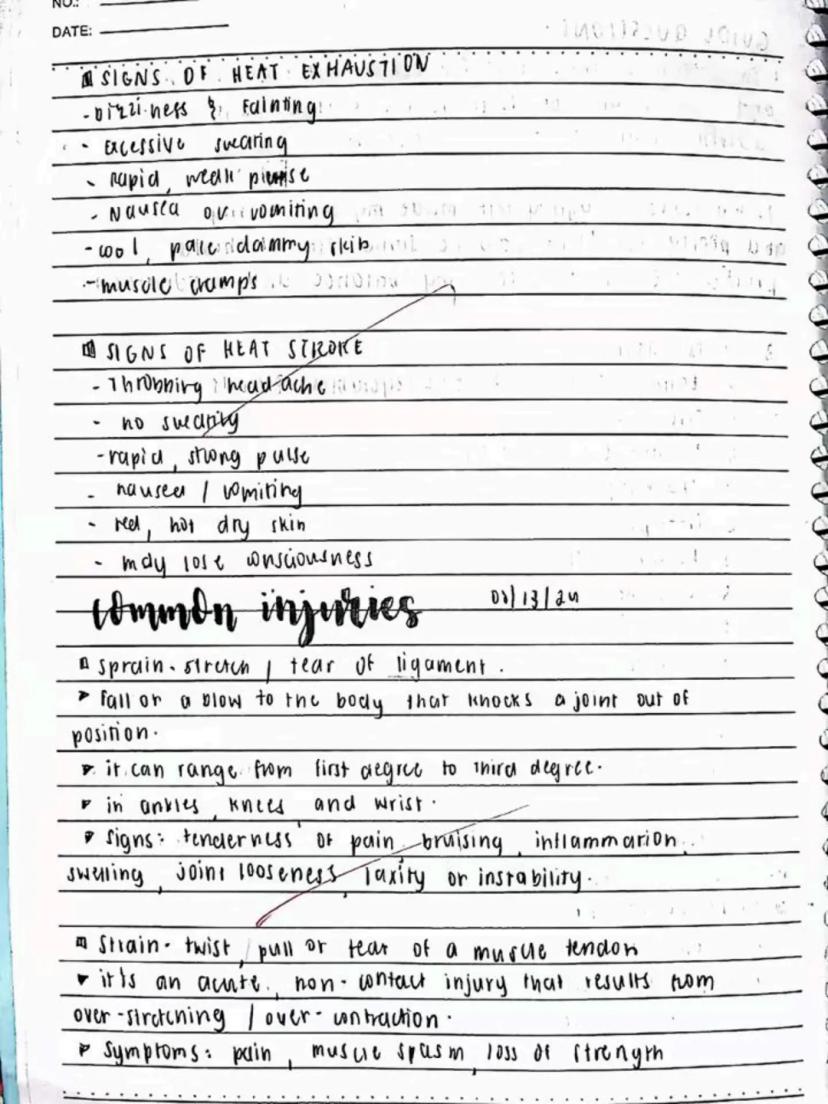 NO.:
DATE:
SIGNS OF HEAT EXHAUSTION
- Dizziness & Fainting
- excessive swearing
- rapid, weak pulse
- Nausea or vomiting
- cool, pale clammy skin
- muscle cramps
SIGNS OF HEAT STROKE
- Throbbing headache
- no swearing
- rapid, strong pulse
- nausea / vomiting
- red, hot dry skin
- may lose consciousness
common injuries
Sprain - stretch / tear of ligament.
Fall or a blow to the body that knocks a joint out of
position.
it can range from first degree to third degree.
in ankles, knees and wrist.
Signs: tenderness of pain, bruising, inflammation,
swelling, joint looseness, laxity or instability.
Strain - twist, pull or tear of a muscle tendon
it is an acute, non-contact injury that results from
over-stretching / over-contraction.
Symptoms: pain, muscle spasm, loss of strength